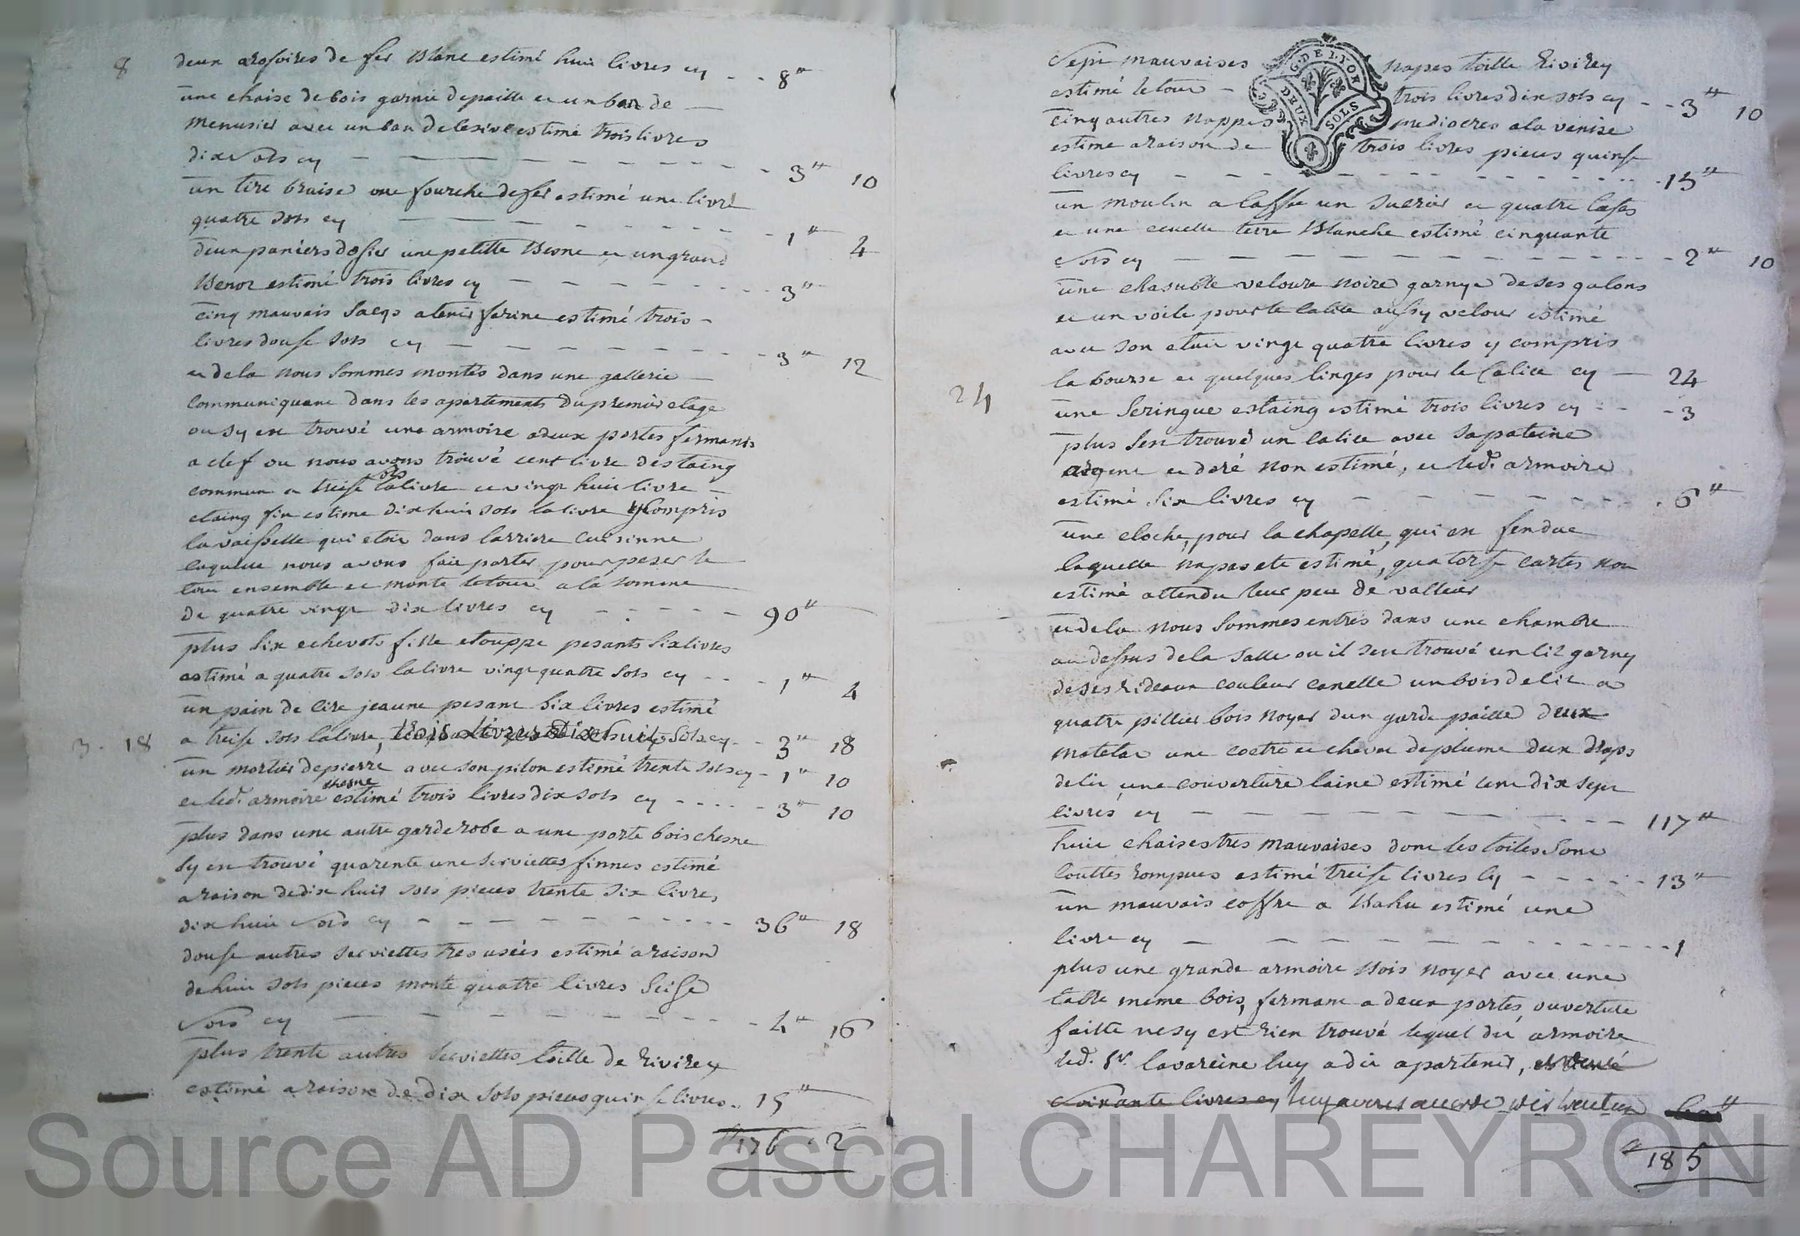 8 deux arosoires de fer blanc estimé huit livres cy - - 8#
une chaise de bois garnie de paille et un ban de
menusier avec un ban de lesive estimé trois livres
dix sols cy - - - 3# 10
un tire braise une fourche de fer estimé une livre
quatre sols cy - - - 1# 4
deux paniers dosier une petitte benne et un grand
benoz estimé trois livres cy - - - 3#
cinq mauvais sacqs a tenir farine estimé trois
livres douse sols cy - - - 3# 12
et dela nous sommes montés dans une gallerie
communiquant dans les apartements du premier etage
ou sy est trouvé une armoire a deux portes fermants
a clef ou nous avons trouvé cent livre destaing
commun a treise sols la livre et vingt huit livre
etaing fin estime dix huit sols la livre y compris
la vaisselle qui etoit dans larriere cuisinne
laquelle nous avons fait porter pour peser le
tout ensemble et monte le tout a la somme
de quatre vingt dix livres cy - - - 90#
plus six echevots fille etouppe pesants six livres
estimé a quatre sols la livre vingt quatre sols cy - - - 1# 4
un pain de cire jeaune pesant six livres estimé
3 . 18 a treise sols la livre, trois livres dix huit sols cy - - 3# 18
un mortier de pierre avec son pilon estimé trente sols cy - 1# 10
et led. armoire chesne estimé trois livres dix sols cy - - - 3# 10
plus dans une autre garderobe a une porte bois chesne
sy est trouvé quarente une serviettes finnes estimé
a raison de dix huit sols pieces trente six livres
dix huit sols cy - - - 36# 18
douse autres serviettes tres usées estimé a raison
de huit sols pieces monte quatre livres seise
sols cy - - - 4# 16
plus trente autres serviettes toille de Rivirey
estimé a raison de dix sols pieces quinse livres - 15#
176 . 2
G. DE LYON
DEUX SOLS
sept mauvaises napes toille Rivirey
estimé le tout - trois livres dix sols cy - - 3# 10
cinq autres nappes mediocres a la venise
estimé a raison de trois livres pieces quinse
livres cy - - - 15#
un moulin a caffee un sucrier et quatre tases
et une ecuelle terre blanche estimé cinquante
sols cy - - - 2# 10
une chasuble veloure noire garnye de ses galons
et un voile pour le calice aussy velour estimé
avec son etuit vingt quatre livres y compris
24 la bourse et quelques linges pour le calice cy - 24
une seringue estaing estimé trois livres cy - - - 3
plus sest trouvé un calice avec sa pateine
argent et doré non estimé, et led. armoire
estimé six livres cy - - - 6#
une cloche, pour la chapelle, qui est fendue
laquelle n'a pas eté estimé, quatorse cartes non
estimé attendu leur peu de valleur
et dela nous sommes entrés dans une chambre
au dessus de la salle ou il sest trouvé un lit garny
de ses rideaux couleur canelle un bois de lit a
quatre pillier bois noyer dun garde paille deux
matelat une coetre et chevet de plume deux draps
de lit, une couverture laine estimé cent dix sept
livres cy - - - 117#
huit chaises tres mauvaises dont les toiles sont
touttes rompues estimé treise livres cy - - - 13#
un mauvais coffre a bahu estimé une
livre cy - - - 1
plus une grande armoire bois noyer avec une
table meme bois, fermant a deux portes, ouverture
faitte ne sy est rien trouvé lequel dit armoire
led. Sr. lavareine luy a dit apartenir, estimé
soixante livres cy 60#
185
Source AD Pascal CHAREYRON